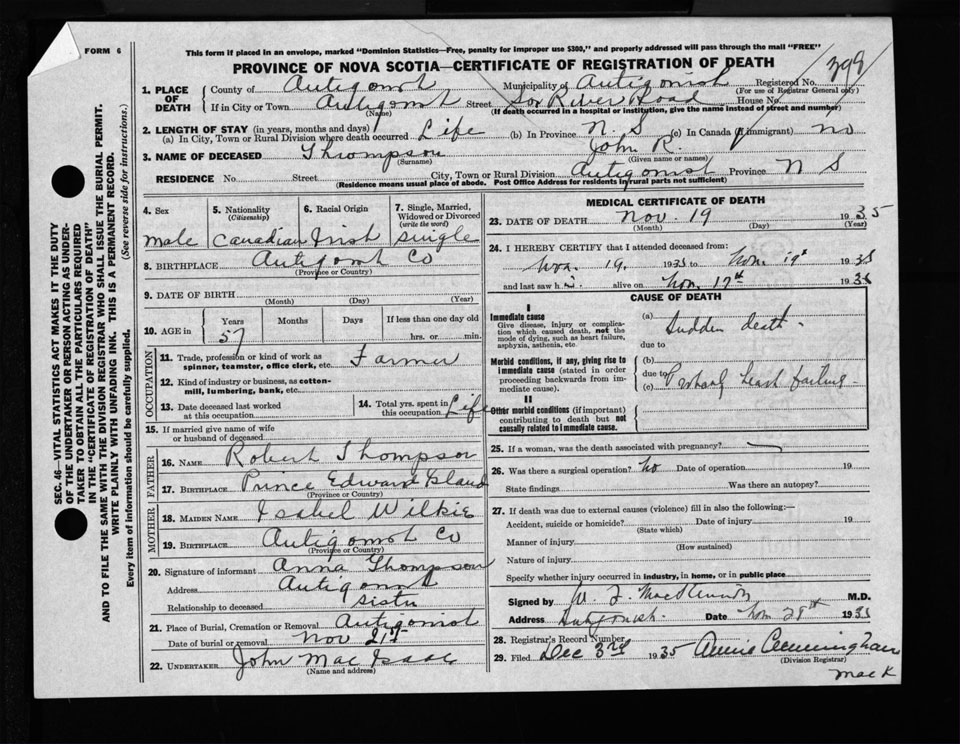 FORM 6
This form if placed in an envelope, marked "Dominion Statistics—Free, penalty for improper use $300," and properly addressed will pass through the mail "FREE"
PROVINCE OF NOVA SCOTIA—CERTIFICATE OF REGISTRATION OF DEATH
1. PLACE OF DEATH
County of Antigonish Municipality of Antigonish Registered No. 399
(For use of Registrar General only)
If in City or Town Antigonish Street Sox River Road House No.
(Name) (If death occurred in a hospital or institution, give the name instead of street and number)
2. LENGTH OF STAY (in years, months and days)
(a) In City, Town or Rural Division where death occurred Life (b) In Province N. S (c) In Canada (if immigrant) no
3. NAME OF DECEASED Thompson John R.
(Surname) (Given name or names)
RESIDENCE No. Street City, Town or Rural Division Antigonish Province N S
(Residence means usual place of abode. Post Office Address for residents in rural parts not sufficient)
4. Sex
male
5. Nationality
(Citizenship)
Canadian
6. Racial Origin
Irish
7. Single, Married, Widowed or Divorced
(write the word)
single
8. BIRTHPLACE Antigonish Co
(Province or Country)
9. DATE OF BIRTH
(Month) (Day) (Year)
10. AGE in Years Months Days If less than one day old
57 hrs. or min.
OCCUPATION
11. Trade, profession or kind of work as spinner, teamster, office clerk, etc. Farmer
12. Kind of industry or business, as cotton-mill, lumbering, bank, etc.
13. Date deceased last worked at this occupation
14. Total yrs. spent in this occupation Life
15. If married give name of wife or husband of deceased
FATHER
16. NAME Robert Thompson
17. BIRTHPLACE Prince Edward Island
(Province or Country)
MOTHER
18. MAIDEN NAME Isabel Wilkie
19. BIRTHPLACE Antigonish Co
(Province or Country)
20. Signature of informant Anna Thompson
Address Antigonish
Relationship to deceased sister
21. Place of Burial, Cremation or Removal Antigonish
Date of burial or removal Nov 21st
22. UNDERTAKER John Mac Isaac
(Name and address)
MEDICAL CERTIFICATE OF DEATH
23. DATE OF DEATH Nov. 19 1935
(Month) (Day) (Year)
24. I HEREBY CERTIFY that I attended deceased from:
Nov. 19, 1935 to Nov. 19th 1935
and last saw h alive on Nov. 19th 1935
CAUSE OF DEATH
I
Immediate cause
Give disease, injury or complication which caused death, not the mode of dying, such as heart failure, asphyxia, asthenia, etc.
(a) Sudden death.
due to
Morbid conditions, if any, giving rise to immediate cause (stated in order proceeding backwards from immediate cause).
(b)
due to
(c) Probably heart failure
II
Other morbid conditions (if important) contributing to death but not causally related to immediate cause.
25. If a woman, was the death associated with pregnancy?
26. Was there a surgical operation? no Date of operation 19
State findings Was there an autopsy?
27. If death was due to external causes (violence) fill in also the following:—
Accident, suicide or homicide? Date of injury 19
(State which)
Manner of injury
(How sustained)
Nature of injury
Specify whether injury occurred in industry, in home, or in public place
Signed by M.D.
Address Antigonish. Date Nov 29th 1935
28. Registrar's Record Number
29. Filed Dec 3rd 1935 Annie Cunningham
(Division Registrar)
Mack
SEC. 46—VITAL STATISTICS ACT MAKES IT THE DUTY
OF THE UNDERTAKER OR PERSON ACTING AS UNDER-
TAKER TO OBTAIN ALL THE PARTICULARS REQUIRED
IN THE "CERTIFICATE OF REGISTRATION OF DEATH"
AND TO FILE THE SAME WITH THE DIVISION REGISTRAR WHO SHALL ISSUE THE BURIAL PERMIT.
WRITE PLAINLY WITH UNFADING INK. THIS IS A PERMANENT RECORD.
Every item of information should be carefully supplied. (See reverse side for instructions.)